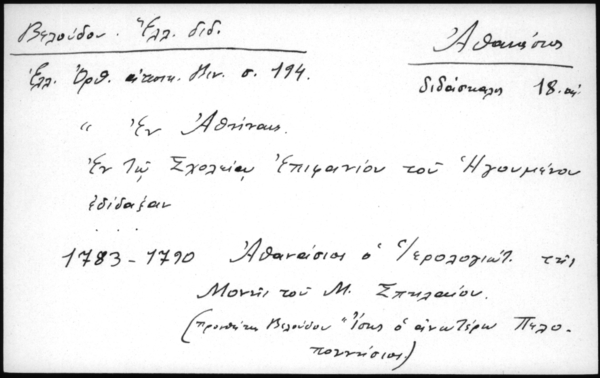 Βελούδου. Ἑλλ. διδ.
Ἀθανάσιος
Ἑλλ. Ὀρθ. ἀποικ. Βεν. σ. 194.
διδάσκαλος 18. αἰ.
" Ἐν Ἀθήναις.
Ἐν τῷ Σχολείῳ Ἐπιφανίου τοῦ Ἡγουμένου
ἐδίδαξαν
. . .
1783-1790 Ἀθανάσιος ὁ Ἱερολογιώτ. τῆς
Μονῆς τοῦ Μ. Σπηλαίου.
(προσθέτει Βελούδου "Ἴσως ὁ ἀνωτέρω Πελο-
ποννήσιος.)